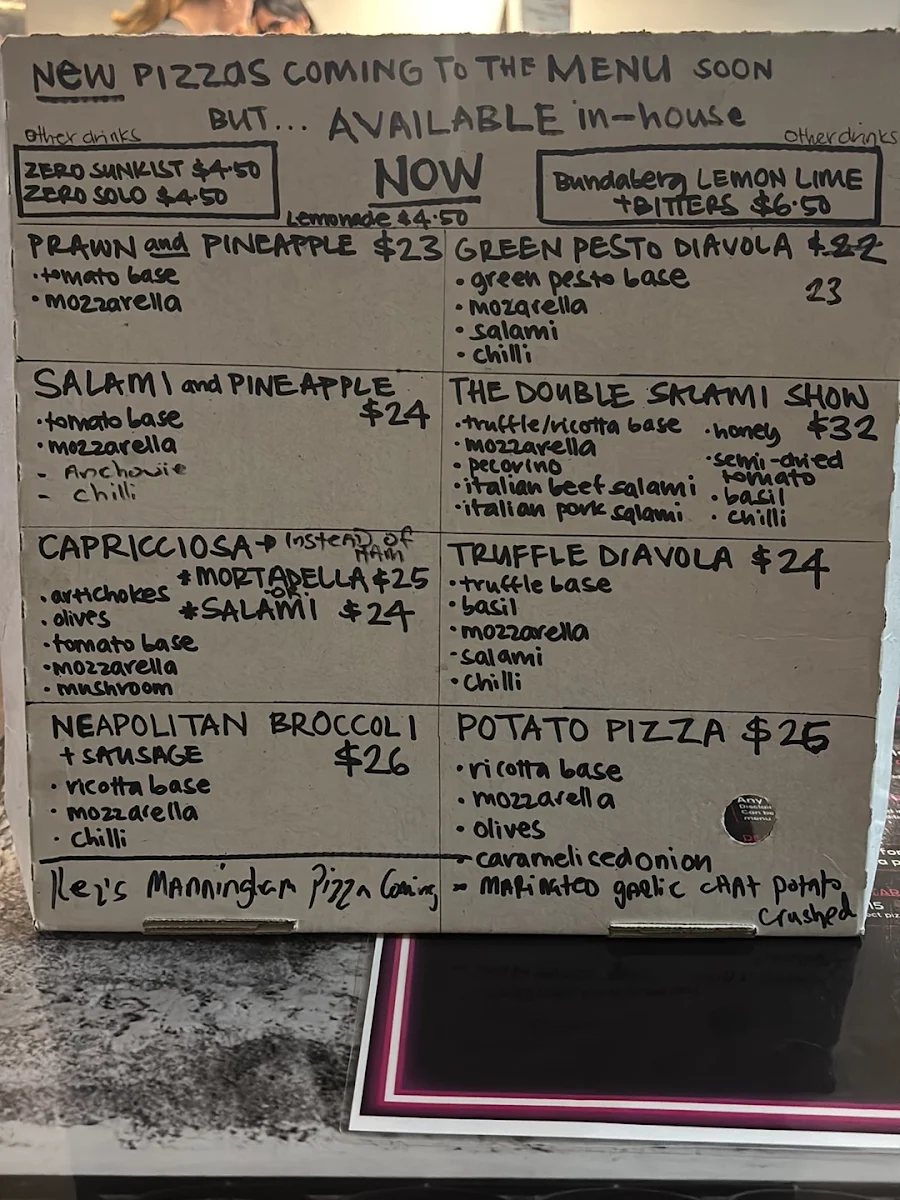 New PIZZAS COMING TO THE MENU SOON
BUT... AVAILABLE in-house
NOW
other drinks
ZERO SUNKIST $4.50
ZERO SOLO $4.50
Lemonade $4.50
other drinks
Bundaberg LEMON LIME
+BITTERS $6.50
PRAWN and PINEAPPLE $23
• tomato base
• mozzarella
GREEN PESTO DIAVOLA $22
23
• green pesto base
• mozarella
• salami
• chilli
SALAMI and PINEAPPLE
$24
• tomato base
• mozzarella
- Anchovie
- chilli
THE DOUBLE SALAMI SHOW
$32
• truffle/ricotta base
• mozzarella
• pecorino
• italian beef salami
• italian pork salami
• honey
• semi-dried
tomato
• basil
• chilli
CAPRICCIOSA → instead of
HAM
*MORTADELLA $25
OR
*SALAMI $24
• artichokes
• olives
• tomato base
• mozzarella
• mushroom
TRUFFLE DIAVOLA $24
• truffle base
• basil
• mozzarella
• salami
• chilli
NEAPOLITAN BROCCOLI
+ SAUSAGE
$26
• ricotta base
• mozzarella
• chilli
POTATO PIZZA $25
• ricotta base
• mozzarella
• olives
- caramelised onion
- MARINATED garlic CHAT potato
crushed
Manningham Pizza Coming
Any
Can be
menu